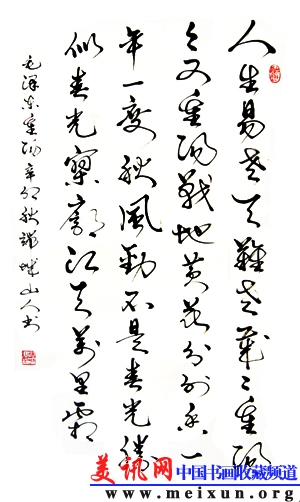 人生易老天難老歲々重陽
今又重陽戰地黄花分外香一
年一度秋風勁不是春光勝
似春光寥廓江天萬里霜
毛澤東重陽辛卯秋 山人书
美讯网 中国书画收藏频道
www.meixun.org